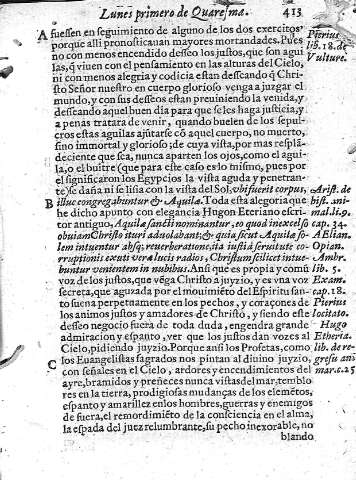 Lunes primero de Quaresma. 413
A fuessen en seguimiento de alguno de los dos exercitos,
porque alli pronosticauan mayores mortandades. Pues
no con menos encendido desseo los justos, que son agui
las, q̃ viuen con el pensamiento en las alturas del Cielo,
ni con menos alegria y codicia estan desseando q̃ Chri-
sto Señor nuestro en cuerpo glorioso venga a juzgar el
mundo, y con sus desseos estan preuiniendo la venida, y
desseando aquel buen dia para que se les haga justicia, y
a penas tratara de venir, quando buelen de los sepul-
cros estas aguilas ajuntarse cõ aquel cuerpo, no muerto,
sino immortal y glorioso; de cuya vista, por mas respla-
deciente que sea, nunca aparten los ojos, como el agui-
la, o el buitre (que para este caso es lo mismo, pues por
el significaron los Egypcios la vista aguda y penetran-
te) se daña ni se lisia con la vista del Sol, vbi fuerit corpus,
B illuc congregabuntur & Aquilæ. Toda esta alegoria que
he dicho apunto con elegancia Hugon Eteriano escri-
tor antiguo, Aquilæ sancti nominantur, eo quod in excelso
obuiam Christo ituri aduolabant; & quia sicut Aquila so-
lem intuentur absq; reuerberatione, ita iusti à seruitute co-
rruptionis exuti vera lucis radios, Christum scilicet intue-
buntur venientem in nubibus. Ansi que es propia y comũ
voz de los justos, que vẽga Christo a juyzio, y es vna voz
secreta, que aguzada por el mouimiẽto del Espiritu san-
to suena perpetuamente en los pechos, y coraçones de
los animos justos y amadores de Christo, y siendo este
desseo negocio fuera de toda duda, engendra grande
admiracion y espanto, ver que los justos dan vozes al
Cielo, pidiendo juyzio. Porque ansi los Profetas, como
C los Euangelistas sagrados nos pintan al diuino juyzio,
con señales en el Cielo, ardores y encendimientos del
ayre, bramidos y preñeces nunca vistas del mar, temblo
res en la tierra, prodigiosas mudanças de los elemẽtos,
espanto y amarillez en los hombres, guerras y enemigos
de fuera, el remordimiẽto de la consciencia en el alma,
la espada del juez relumbrante, su pecho inexorable, no
blando
Pierius
lib. 18. de
Vulture.
Arist. de
hist. ani-
mal. li. 9.
cap. 34.
Aelian.
Opian.
Ambr.
lib. 5.
Exam.
cap. 18.
Pierius
loc. citato.
Hugo
Etheria.
lib. de re-
gressu ani
mar. c. 25